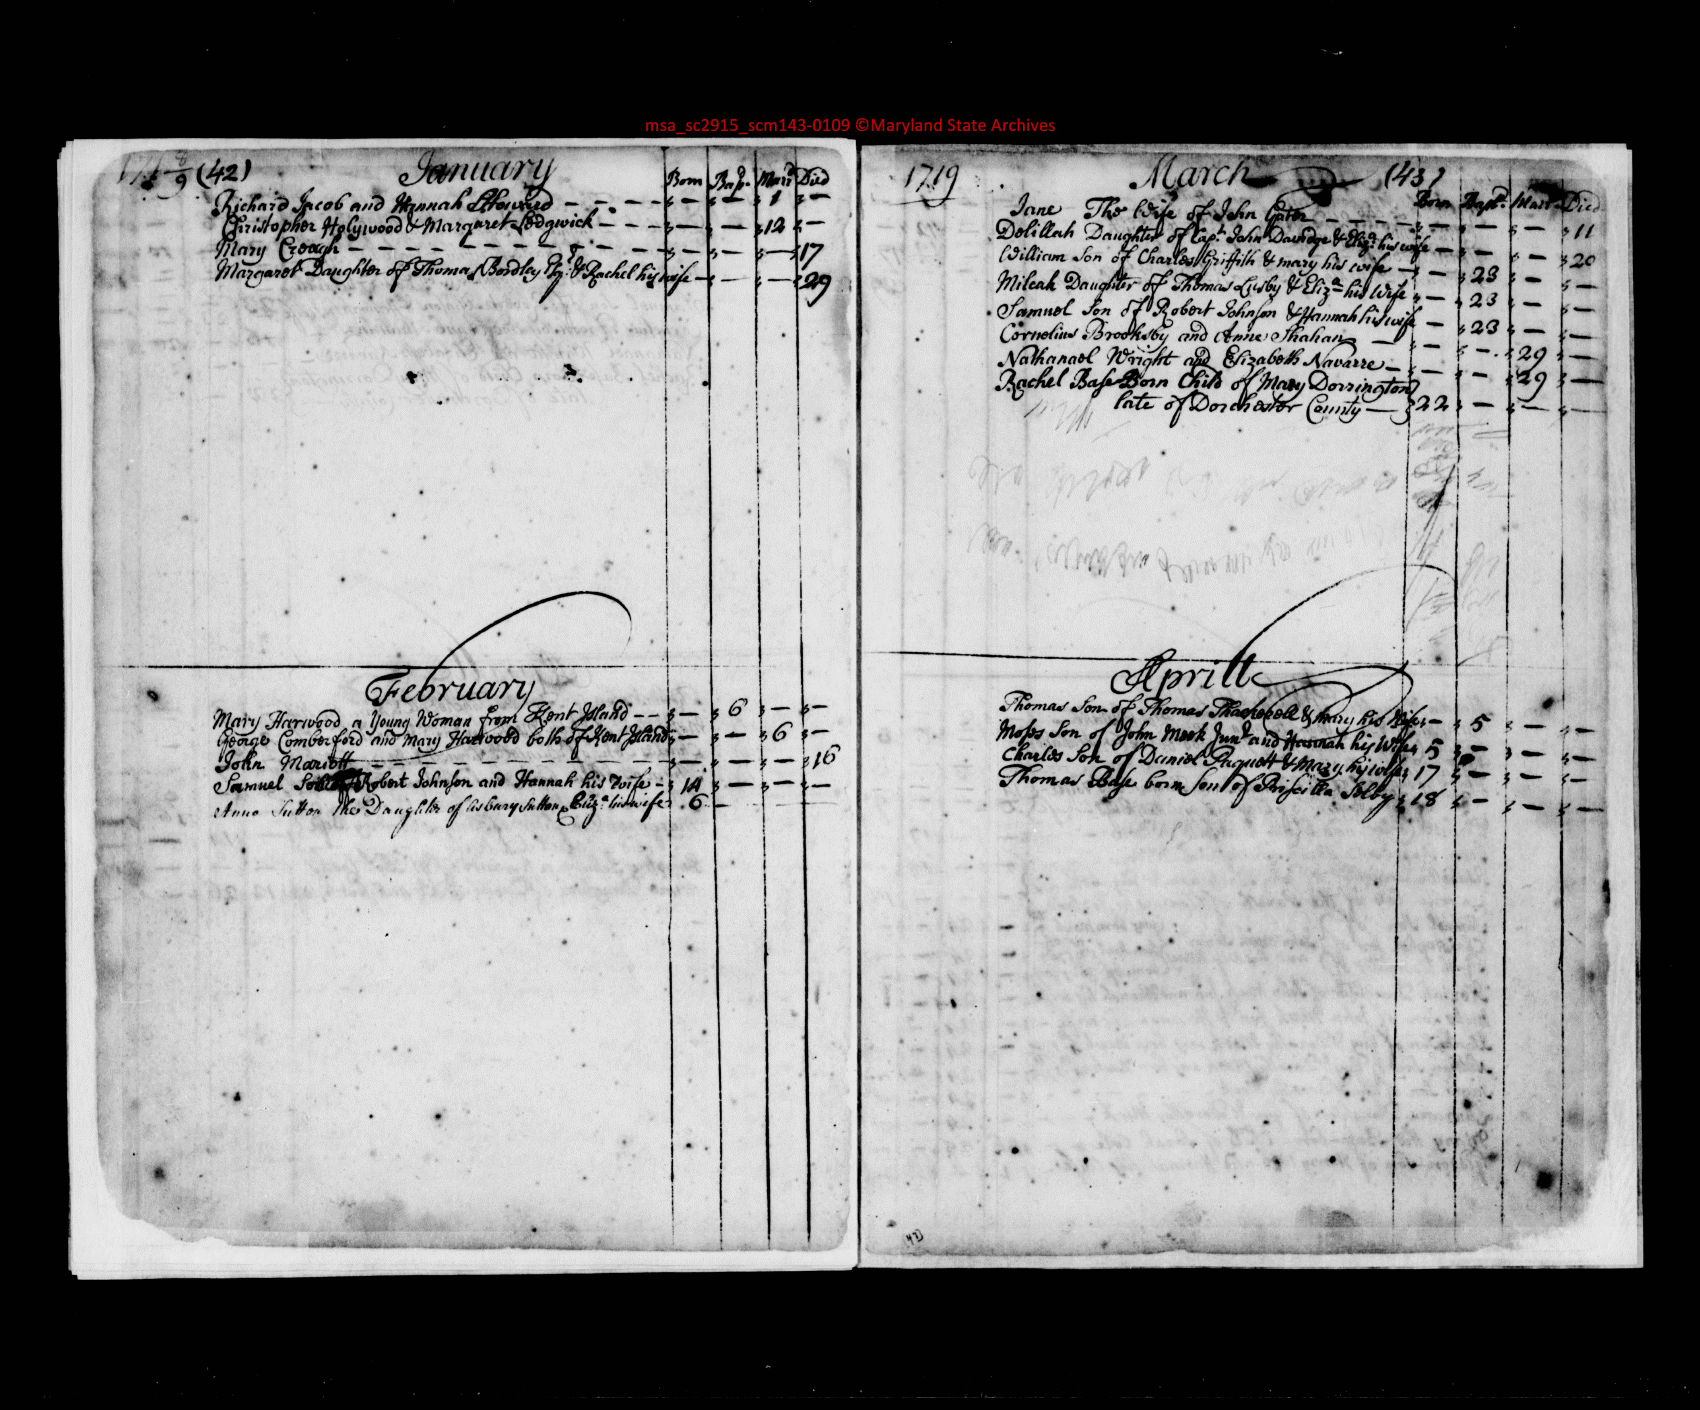 msa_sc2915_scm143-0109 ©Maryland State Archives
171 8/9 (42) January Born Bapt. Marrd Died
Richard Jacob and Hannah Howard - - - - - - 1 -
Christopher Holywood & Margaret Sedgwick - - - - - 12 -
Mary Creagh - - - - - - - - - - 17
Margaret Daughter of Thomas Bordley Esqr. & Rachel his wife - - - 29
February
Mary Harwood a Young Woman from Kent Island - - - 6 - -
George Comberford and Mary Harwood both of Kent Island - - 6 -
John Mariott - - - - - - - - - - 16
Samuel Son of Robert Johnson and Hannah his wife - 14 - - -
Anne Sutton the Daughter of Asbury Sutton & Eliza. his wife 6 -
1719 March (43)
Born Bapt. Marr Died
Jane The Wife of John Gater - - - - - - - 11
Delillah Daughter of Capt. John Davidge & Eliza his wife - - - - 20
William Son of Charles Griffith & mary his wife - - 23 - -
Mileah Daughter of Thomas Lusby & Eliza his Wife - 23 - -
Samuel Son of Robert Johnson & Hannah his wife - 23 - -
Cornelius Brooksby and Anne Shahan - - - 29 -
Nathanael Wright and Elizabeth Navarre - - - 29 -
Rachel Base Born Child of Mary Dorrington
late of Dorchester County - 22 - - -
Aprill
Thomas Son of Thomas & mary his Wife - 5 - -
Moses Son of John Meek Junr and Hannah his Wife 5 - - -
Charles Son of Daniel & Mary his wife 17 - - -
Thomas Base born Son of Priscilla Selby 18 - - -